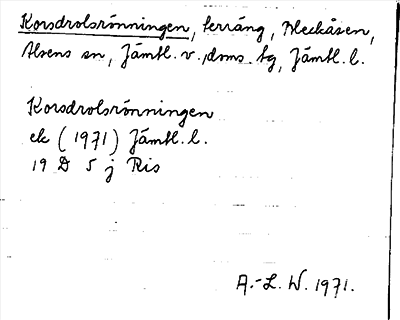 Korsdrolsrönningen, terräng, Bleckåsen,
Alsens sn, Jämtl. v. doms. tg, Jämtl. l.
Korsdrolsrönningen
ek (1971) Jämtl. l.
19 D 5 j Ris
A.-L. W. 1971.